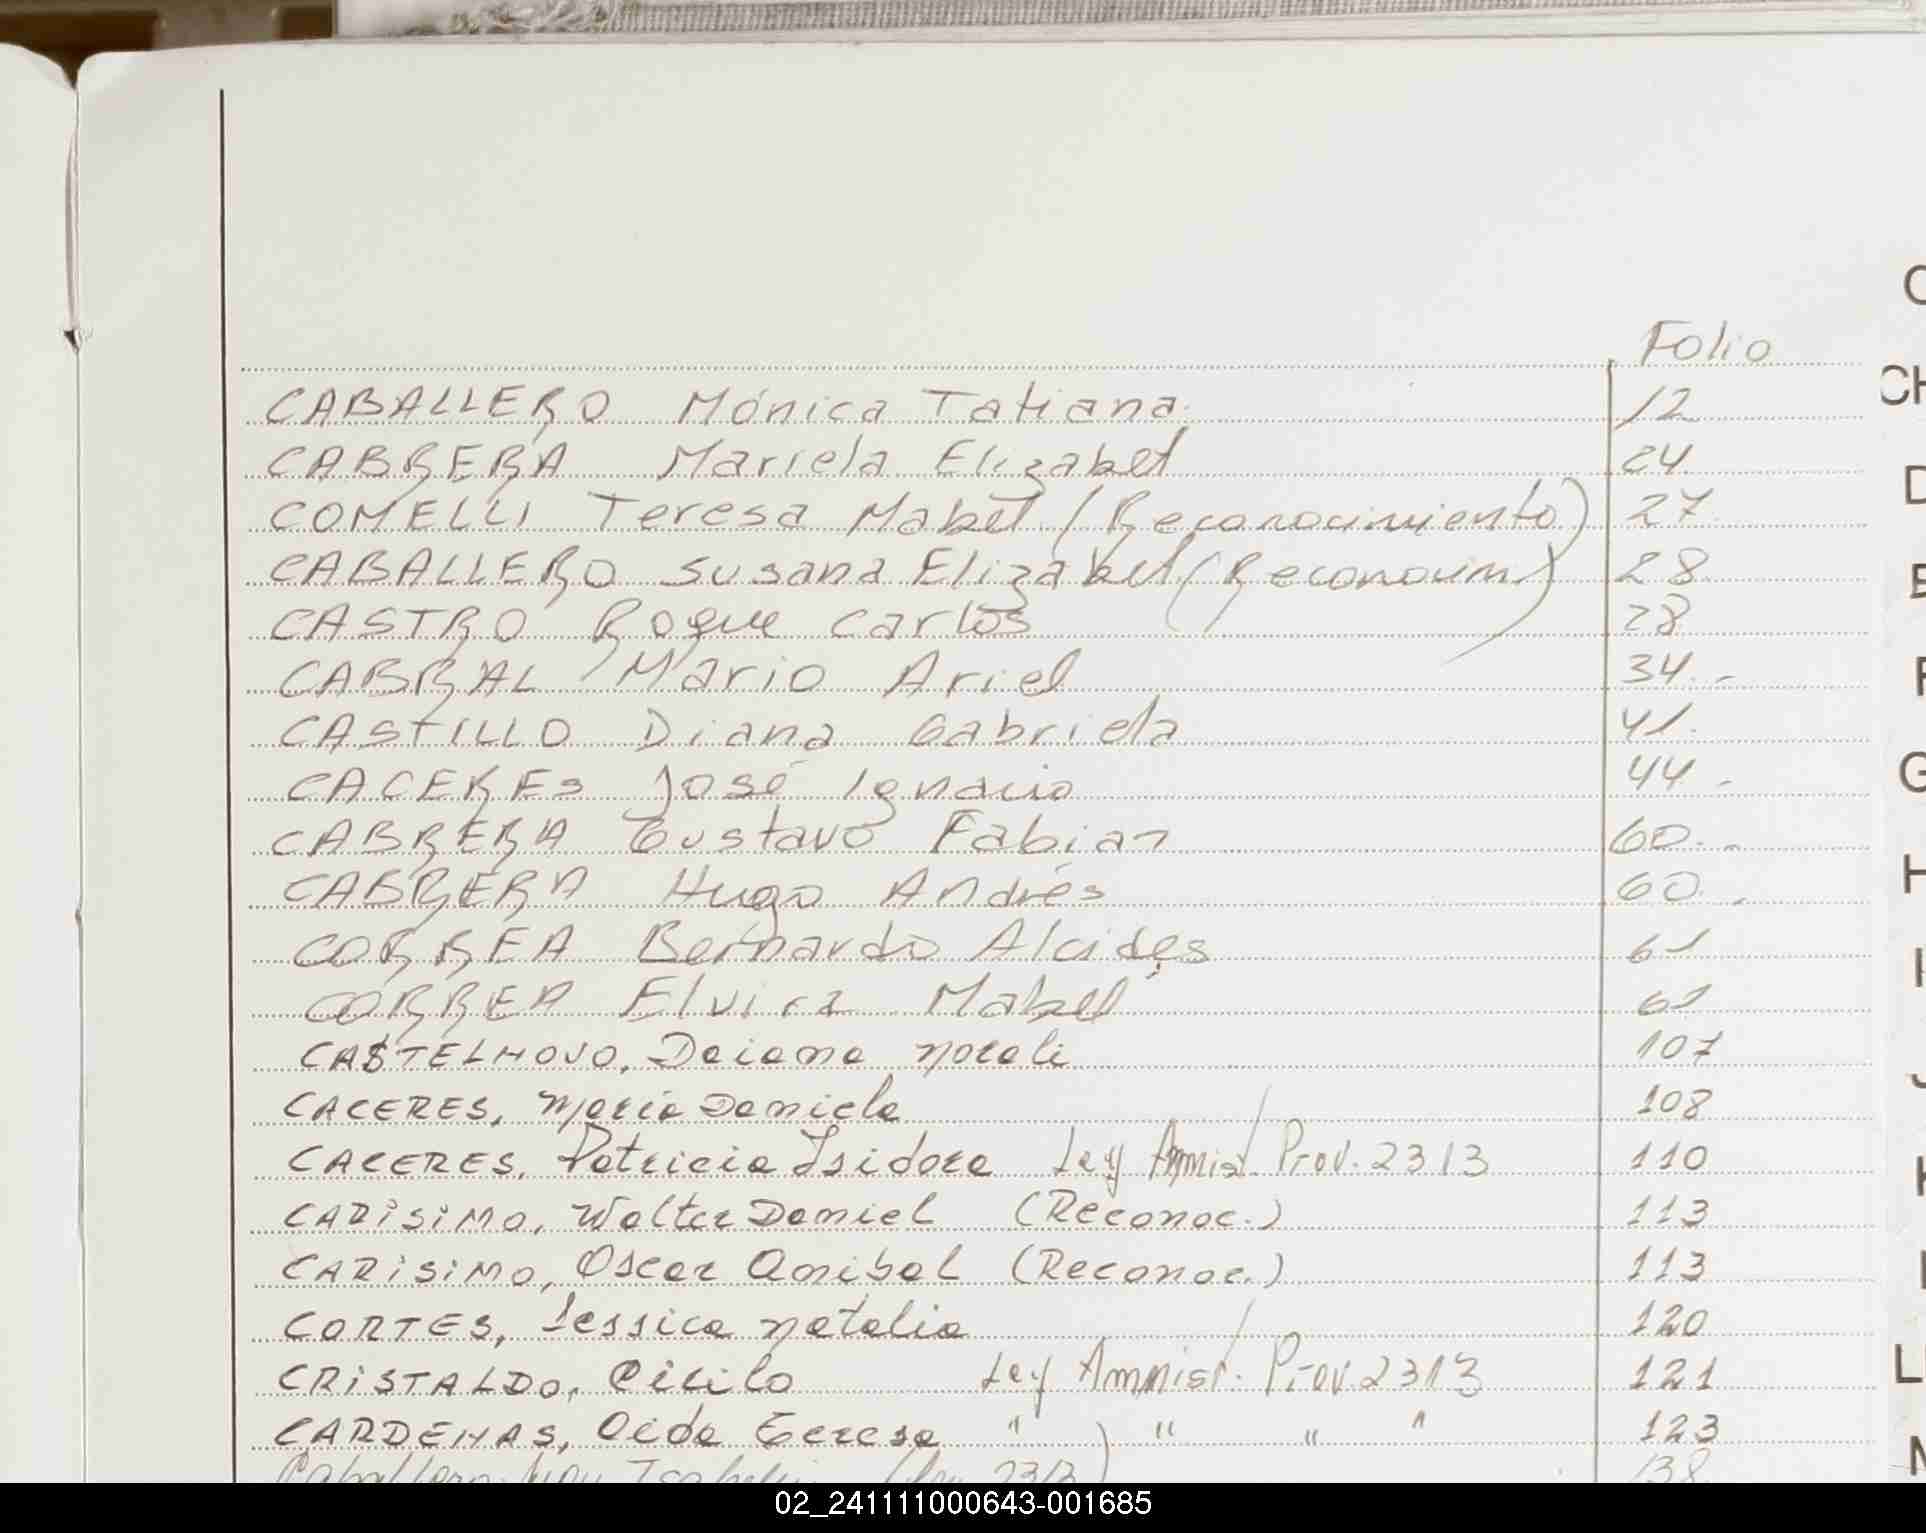 Folio
CABALLERO Mónica Tatiana. 12
CABRERA Mariela Elizabet 24
COMELLI Teresa Mabel (Reconocimiento) 27
CABALLERO Susana Elizabet (Reconocim) 28
CASTRO Roque Carlos 28
CABRAL Mario Ariel 34.-
CASTILLO Diana Gabriela 41.
CACERES José Ignacio 44-
CABRERA Gustavo Fabian 60.-
CABRERA Hugo Andrés 60.-
CORREA Bernardo Alcides 61
CORREA Elvira Mabel 61
CASTELNOVO, Daiana Noralí 107
CACERES, María Daniela 108
CACERES, Patricia Isidora Ley Amnist. Prov. 2313 110
CARISIMO, Walter Daniel (Reconoc.) 113
CARISIMO, Oscar Anibal (Reconoc.) 113
CORTES, Jessica Natalia 120
CRISTALDO, Cirilo Ley Amnist. Prov. 2313 121
CARDENAS, Teresa " " " " 123
Caballero 138
C
CH
D
E
F
G
H
I
J
K
L
M
02_241111000643-001685